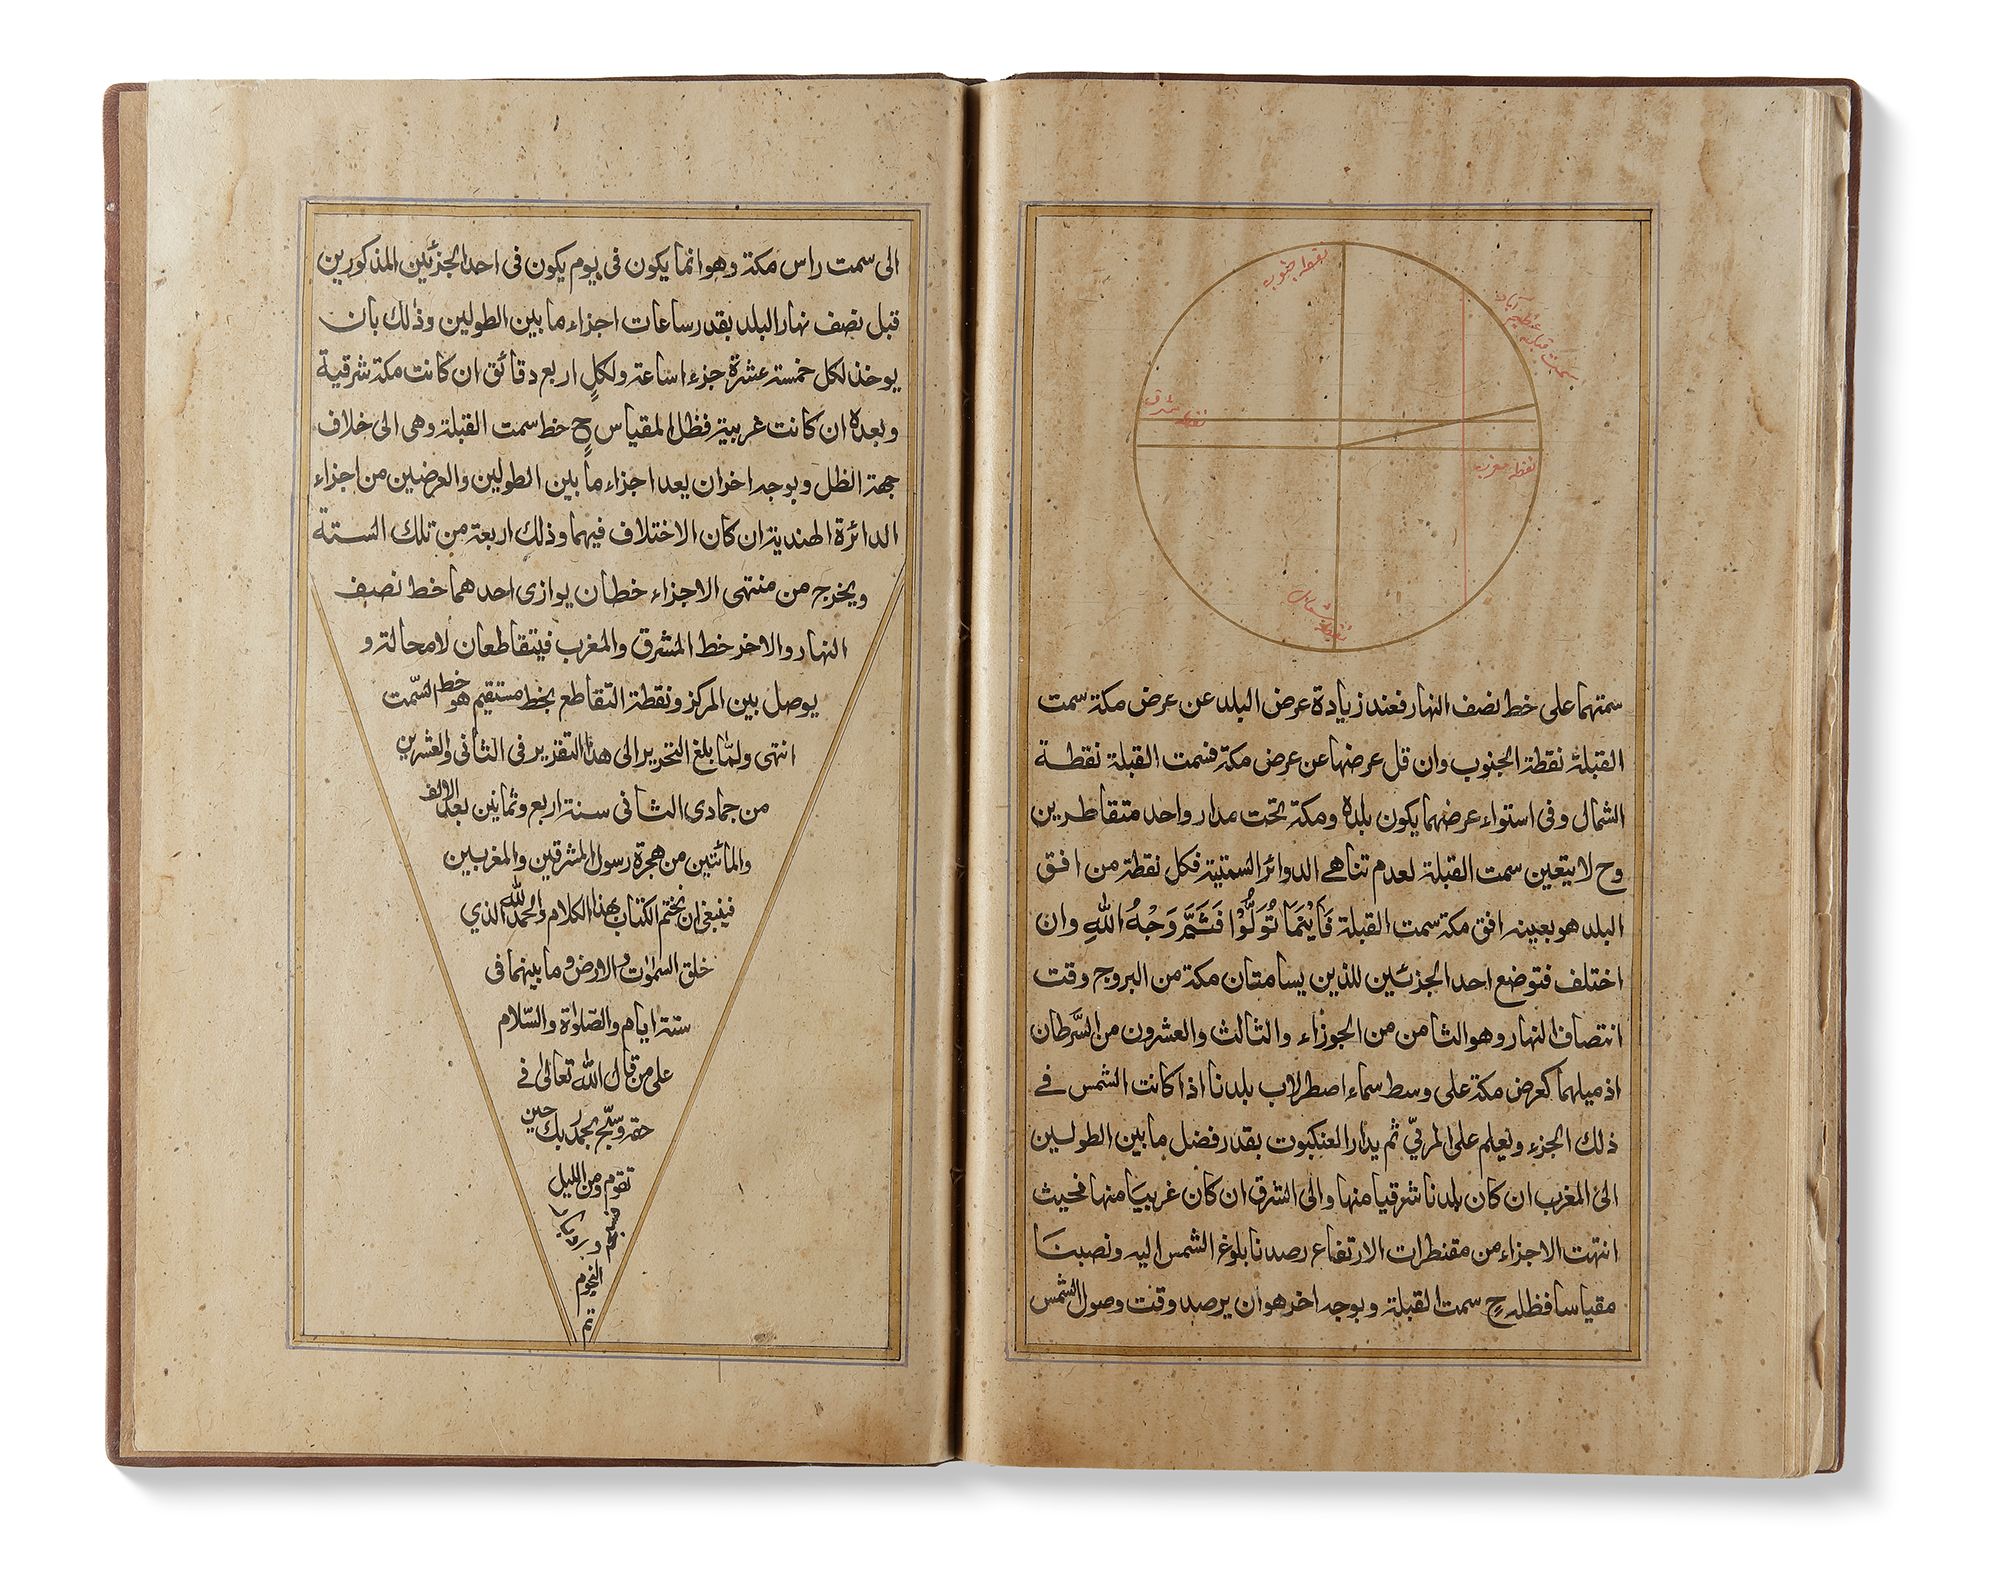 نقطه جنوب
سمت قبله عظیم آباد
نقطه مشرق
نقطه مغرب
نقطه شمال
سمتهما على خط نصف النهار فعند زيادة عرض البلد عن عرض مكة سمت
القبلة نقطة الجنوب وان قل عرضها عن عرض مكة فسمت القبلة نقطة
الشمال وفى استواء عرضهما يكون بلده ومكة تحت مدار واحد متقاطرين
وح لا يتعين سمت القبلة لعدم تناهى الدوائر السمتية فكل نقطة من افق
البلد هو بعينه افق مكة سمت القبلة فَاَيْنَمَا تُوَلُّوْا فَثَمَّ وَجْهُ اللّٰهِ وان
اختلف فتوضع احد الجزئين للذين يسامتان مكة من البروج وقت
انتصاف النهار وهو الثامن من الجوزاء والثالث والعشرون من السَّرطان
اذ ميلهما كعرض مكة على وسط سماء اصطرلاب بلدنا اذا كانت الشمس فے
ذلك الجزء ونعلم على المرئي ثم يدار العنكبوت بقدر فضل ما بين الطولين
الى المغرب ان كان بلدنا شرقيا منها والى الشرق ان كان غربيا منها فحيث
انتهت الاجزاء من مقنطرات الارتفاع رصدنا بلوغ الشمس اليه ونصبنا
مقياسا فظله ح سمت القبلة وبوجه اخر هو ان يرصد وقت وصول الشمس
الى سمت راس مكة وهو انما يكون فى يوم يكون فى احد الجزئين المذكورين
قبل نصف نهار البلد بقدر ساعات اجزاء ما بين الطولين وذلك بان
يوخذ لكل خمسة عشرة جزء اساعة ولكلٍ اربع دقائق ان كانت مكة شرقية
وبعده ان كانت غربية فظل المقياس ح خط سمت القبلة وهى الى خلاف
جهة الظل وبوجه اخر ان يعد اجزاء ما بين الطولين والعرضين من اجزاء
الدائرة الهندية ان كان الاختلاف فيهما وذلك اربعة من تلك الستة
ويخرج من منتهى الاجزاء خطان يوازى احدهما خط نصف
النهار والاخر خط المشرق والمغرب فيتقاطعان لا محالة و
يوصل بين المركز ونقطة التقاطع بخط مستقيم هو خط السّمت
انتهى ولمّا بلغ التحرير الى هذا التقرير فى الثانى والعشرين
من جمادى الثانى سنة اربع وثمانين بعد الالف
والمائتين من هجرة رسول المشرقين والمغربين
فينبغى ان نختم الكتاب بهذا الكلام والحمد لله الذي
خلق السمٰوٰت والارض وما بينهما فى
ستة ايام والصّلواة والسّلام
على من قال الله تعالى فے
حقه وسبّح بحمد ربك حين
تقوم ومن الليل
فسبحه و
النجوم
تم